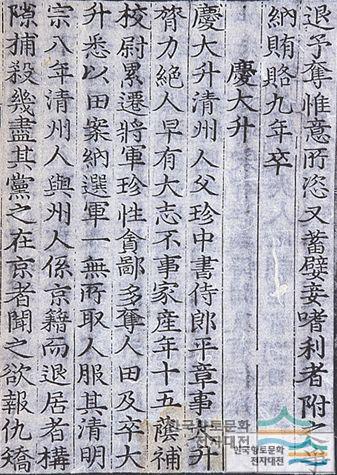 退予奪惟意所恣又蓄嬖妾嗜利者附之
納賄賂九年卒
慶大升
慶大升清州人父珍中書侍郎平章事大升
膂力絕人早有大志不事家産年十五蔭補
校尉累遷將軍珍性貪鄙多奪人田及卒大
升悉以田案納選軍一無所取人服其清明
宗八年清州人與州人係京籍而退居者構
隙捕殺幾盡其黨之在京者聞之欲報仇矯
한국향토문화
전자대전
한국향토문화
전자대전